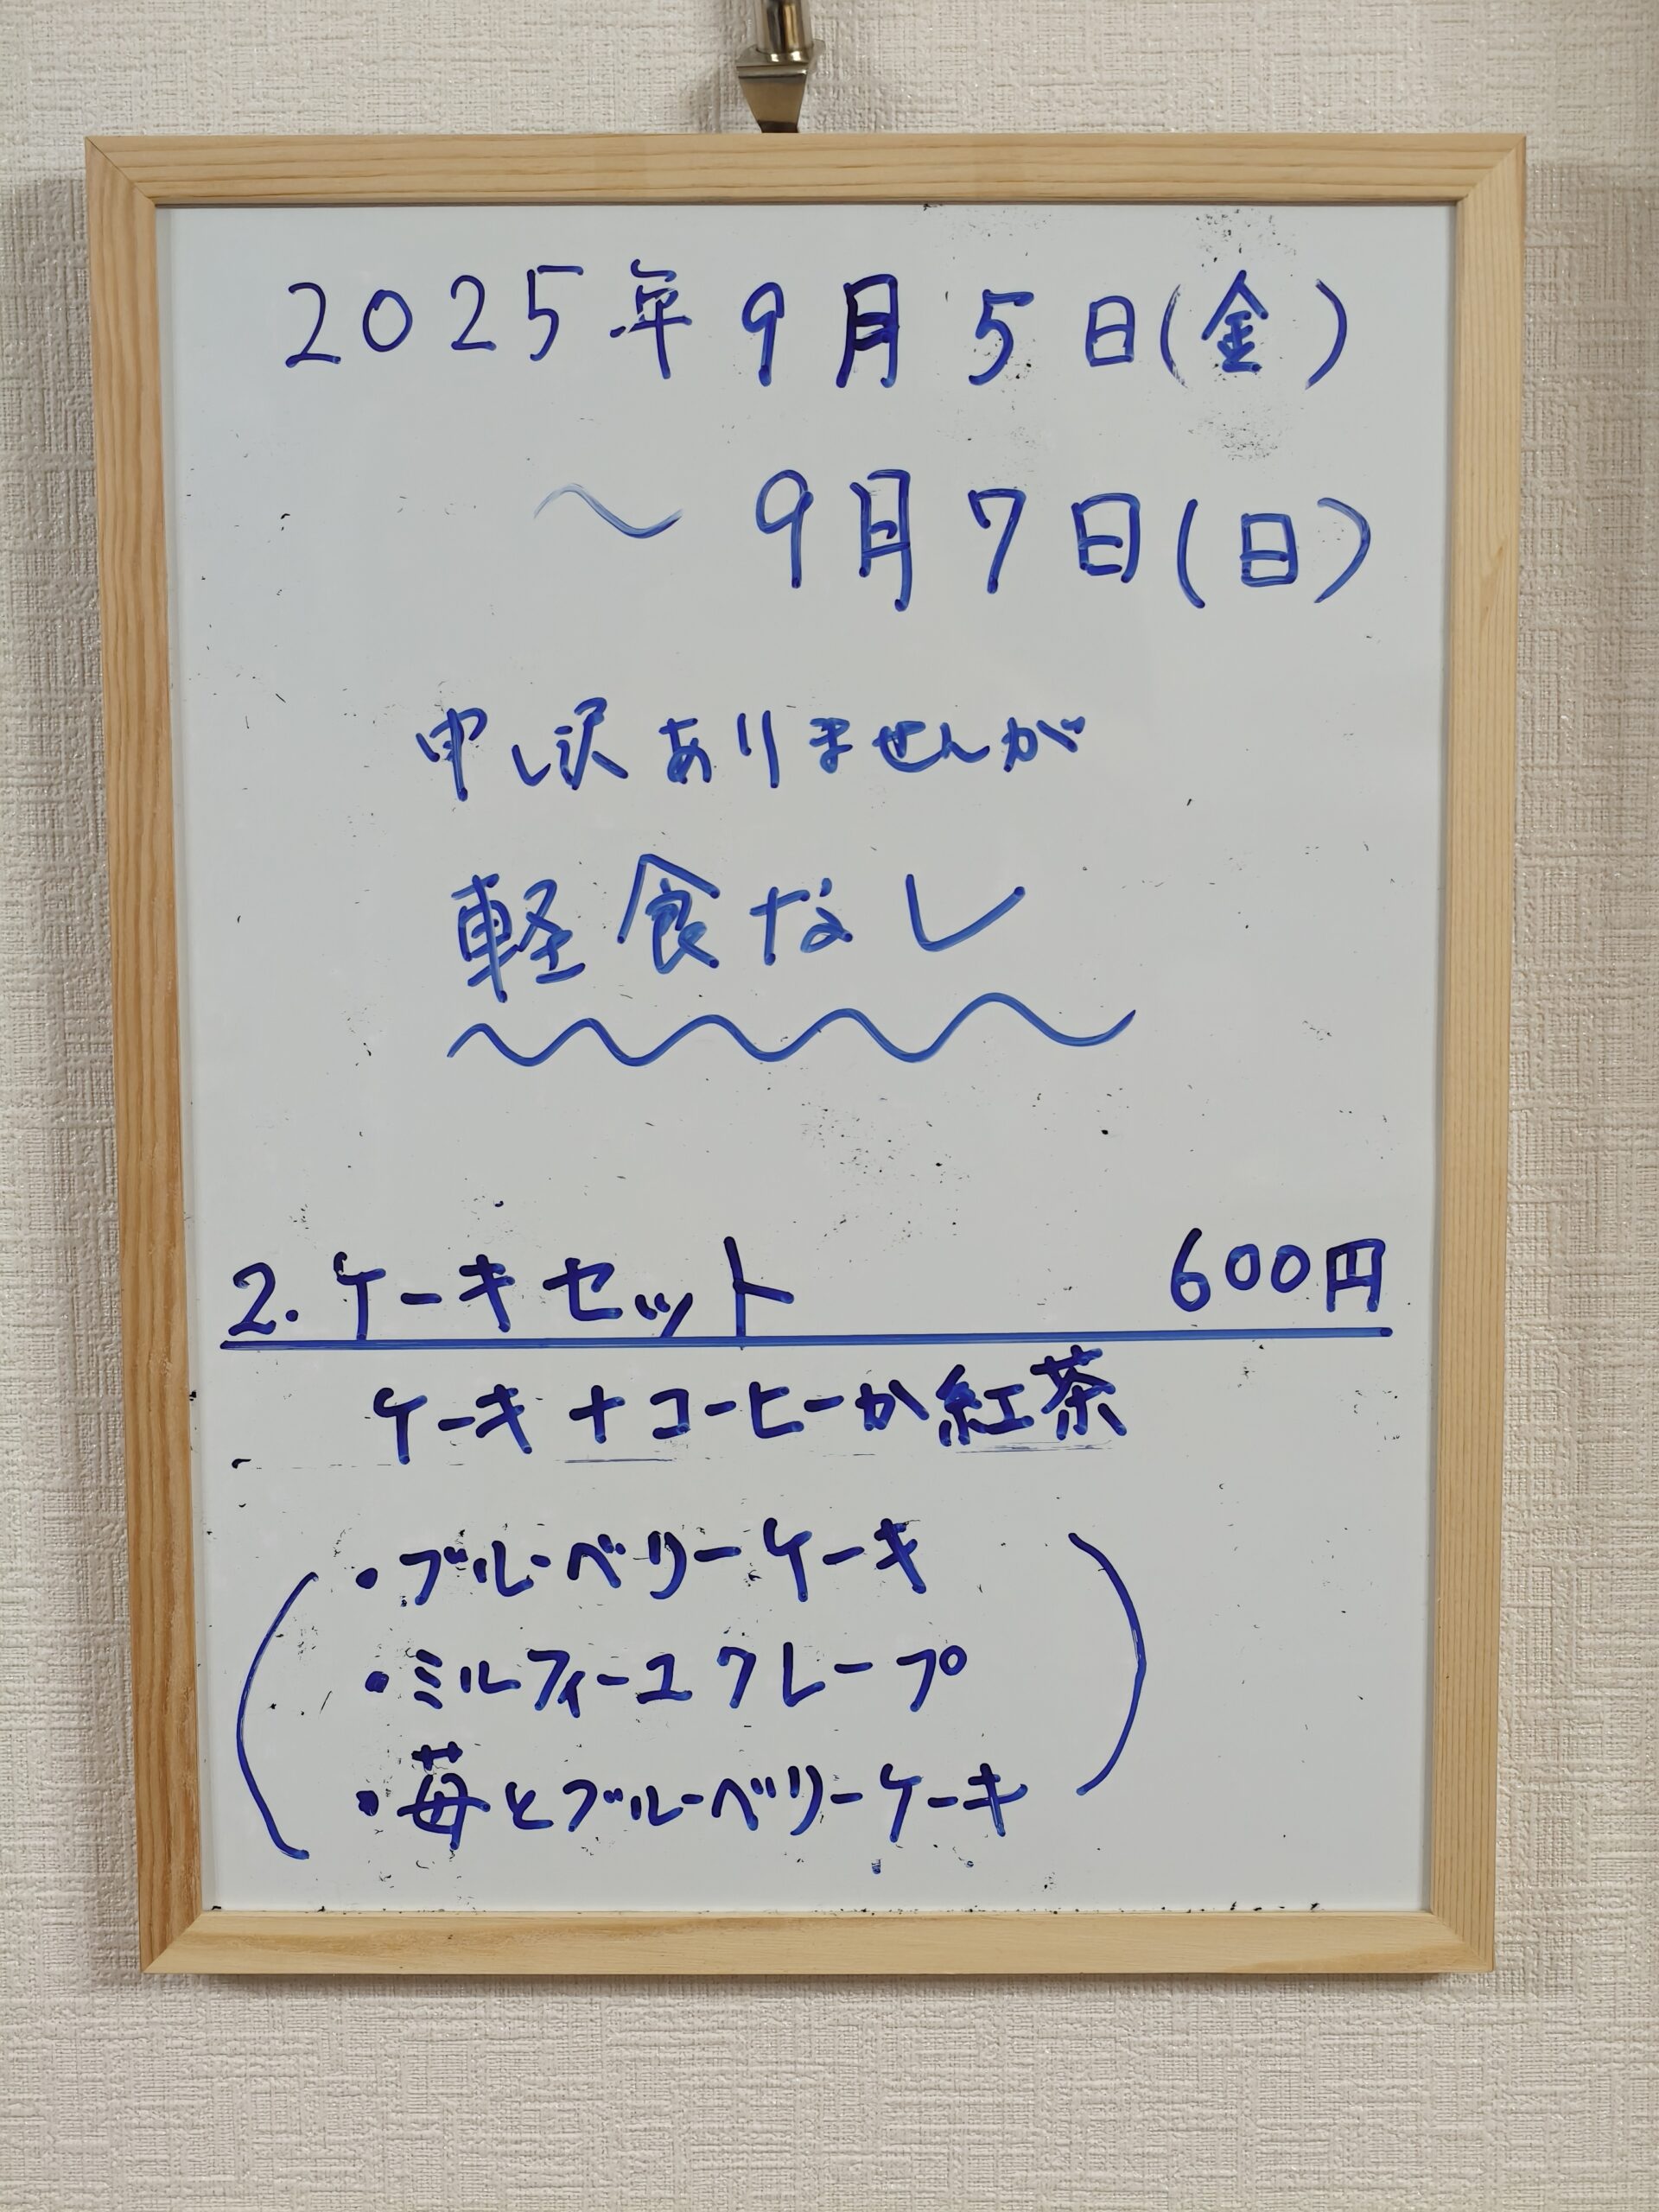 2025年9月5日(金)
〜9月7日(日)
申し訳ありませんが
軽食なし
2.ケーキセット 600円
ケーキ+コーヒーか紅茶
・ブルーベリーケーキ
・ミルフィーユクレープ
・苺とブルーベリーケーキ